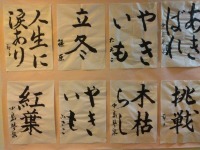 あき
ばれ
やき
いも
立冬
人生に
涙あり
挑戦
木枯
らし
やき
いも
紅葉